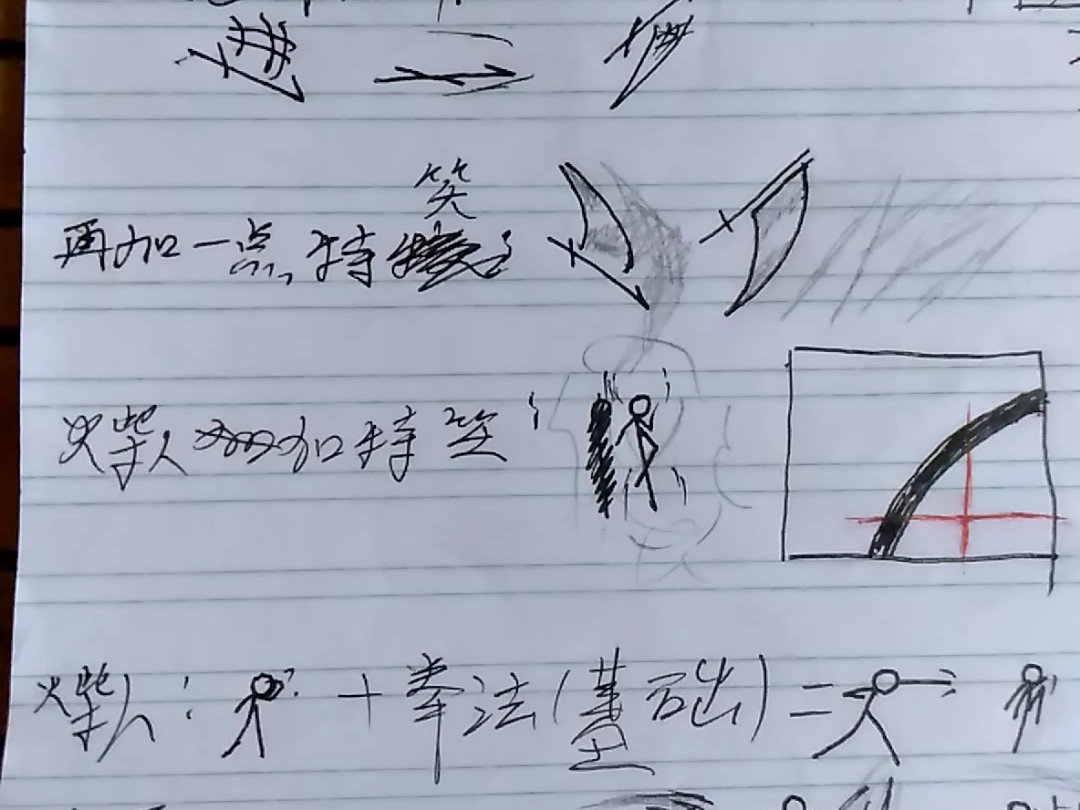 再加一点特笑:
火柴人加特笑:
火柴人: + 拳法(基础) =